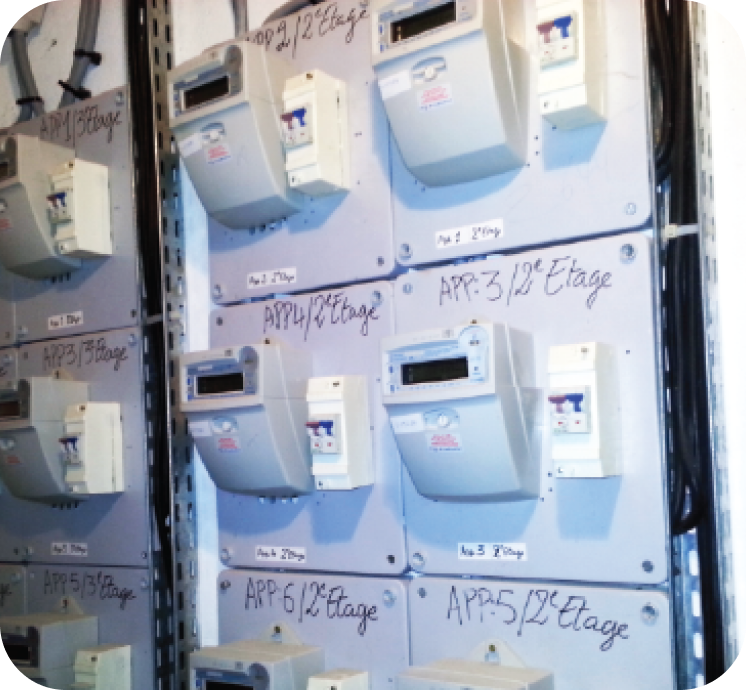 APP2/2ᵉEtage
APP1/3ᵉEtage
App 2 2ᵉEtage
App 1 2ᵉEtage
APP4/2ᵉEtage
APP:3/2ᵉEtage
APP3/3ᵉEtage
App 4 2ᵉEtage
App 3 2ᵉEtage
APP5/3ᵉEtage
APP:6/2ᵉEtage
APP:5/2ᵉEtage